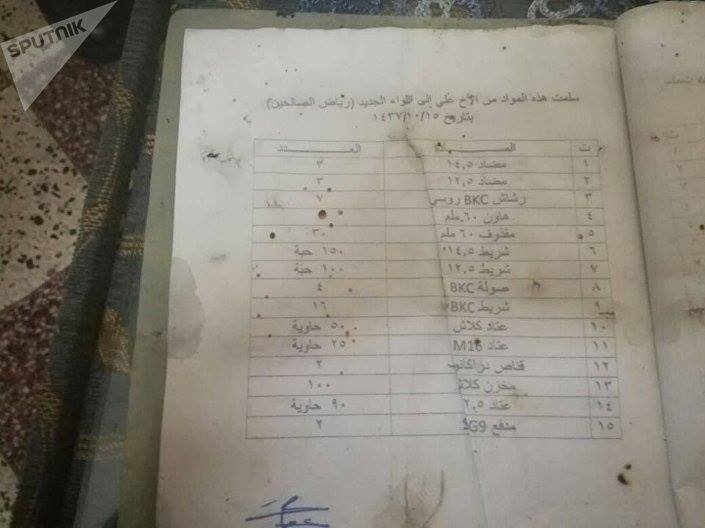 SPUTNIK
سلمت هذه المواد من الاخ علي إلى اللواء الجديد (رياض الصالحين)
بتاريخ ١٤٣٧/١٠/١٥
ت المـــادة العـــدد
١ مضاد ١٤,٥ ٣
٢ مضاد ١٢,٥ ٣
٣ رشاش BKC روسي ٧
٤ هاون ٦٠ ملم
٥ مقذوف ٦٠ ملم ٣٠
٦ شريط ١٤,٥ ١٥٠ حبة
٧ شريط ١٢,٥ ١٠٠ حبة
٨ صولة BKC ٤
٩ شريط BKC ١٦
١٠ عتاد كلاش ٥٠ حاوية
١١ عتاد M16 ٢٥ حاوية
١٢ قناص ٢
١٣ مخزن كلاش ١٠٠
١٤ عتاد ٢,٥ ٩٠ حاوية
١٥ مدفع SG9 ٢